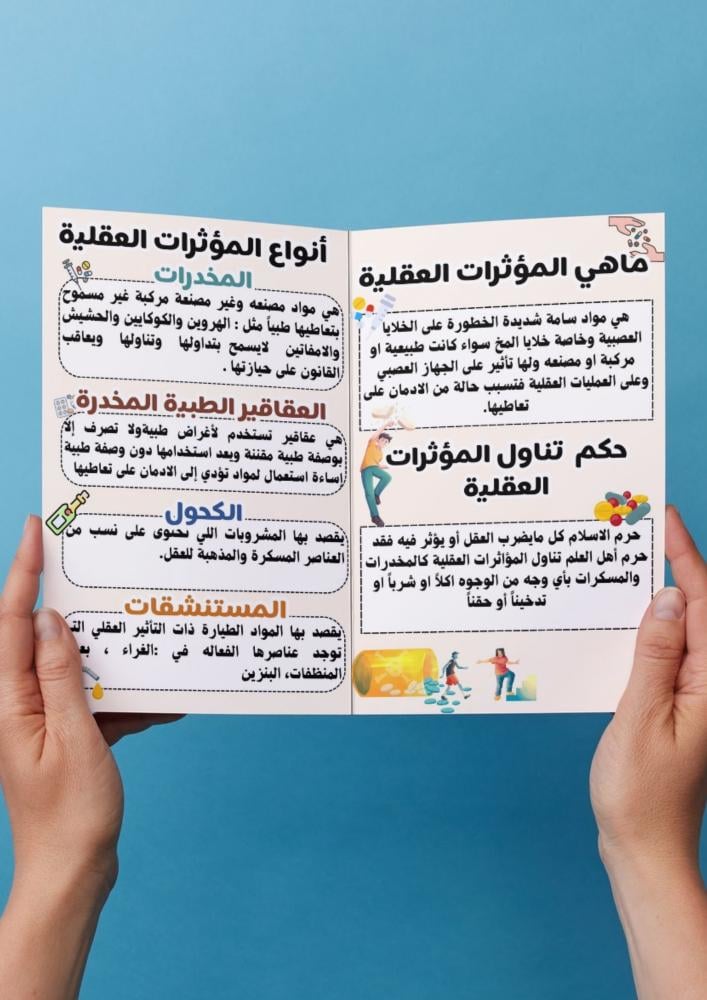 ماهي المؤثرات العقلية
هي مواد سامة شديدة الخطورة على الخلايا
العصبية وخاصة خلايا المخ سواء كانت طبيعية او
مركبة او مصنعه ولها تأثير على الجهاز العصبي
وعلى العمليات العقلية فتسبب حالة من الادمان على
تعاطيها.
حكم تناول المؤثرات
العقلية
حرم الاسلام كل مايضرب العقل أو يؤثر فيه فقد
حرم أهل العلم تناول المؤاثرات العقلية كالمخدرات
والمسكرات بأي وجه من الوجوه اكلاً او شرباً او
تدخيناً أو حقناً
أنواع المؤثرات العقلية
المخدرات
هي مواد مصنعه وغير مصنعة مركبة غير مسموح
بتعاطيها طبياً مثل : الهروين والكوكايين والحشيش
والامفاتين لايسمح بتداولها وتناولها ويعاقب
القانون على حيازتها .
العقاقير الطبية المخدرة
هي عقاقير تستخدم لأغراض طبيةولا تصرف إلا
بوصفة طبية مقننة ويعد استخدامها دون وصفة طبية
إساءة استعمال لمواد تؤدي إلى الادمان على تعاطيها
الكحول
يقصد بها المشروبات اللي تحتوى على نسب من
العناصر المسكرة والمذهبة للعقل.
المستنشقات
يقصد بها المواد الطيارة ذات التأثير العقلي
توجد عناصرها الفعاله في :الغراء ،
المنظفات، البنزين